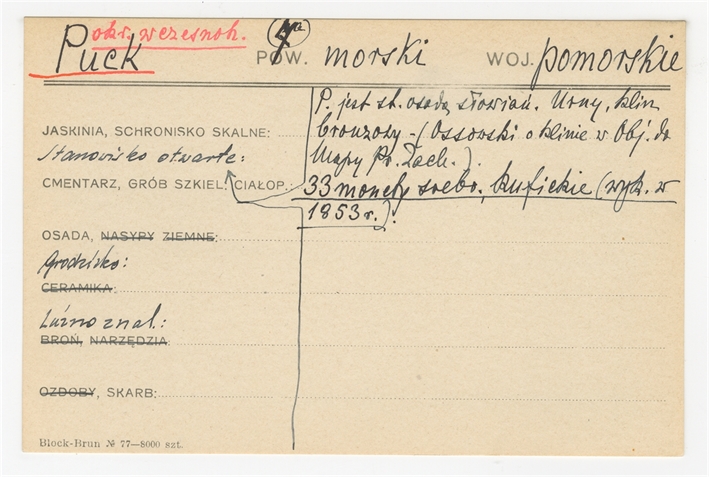 okr. wczesnoh. 4a
Puck POW. morski WOJ. pomorskie
P. jest st. osadą słowiań. Urny, klin
JASKINIA, SCHRONISKO SKALNE: bronzowy - (Ossowski o klinie w Obj. do
Stanowisko otwarte: Mapy Pr. Zach.).
CMENTARZ, GRÓB SZKIEL. CIAŁOP.: 33 monety srebr., kufickie (wyk. w
1853 r.).
OSADA, NASYPY ZIEMNE:
Grodzisko:
CERAMIKA:
Luźno znal.:
BROŃ, NARZĘDZIA
OZDOBY, SKARB:
Block-Brun № 77—8000 szt.